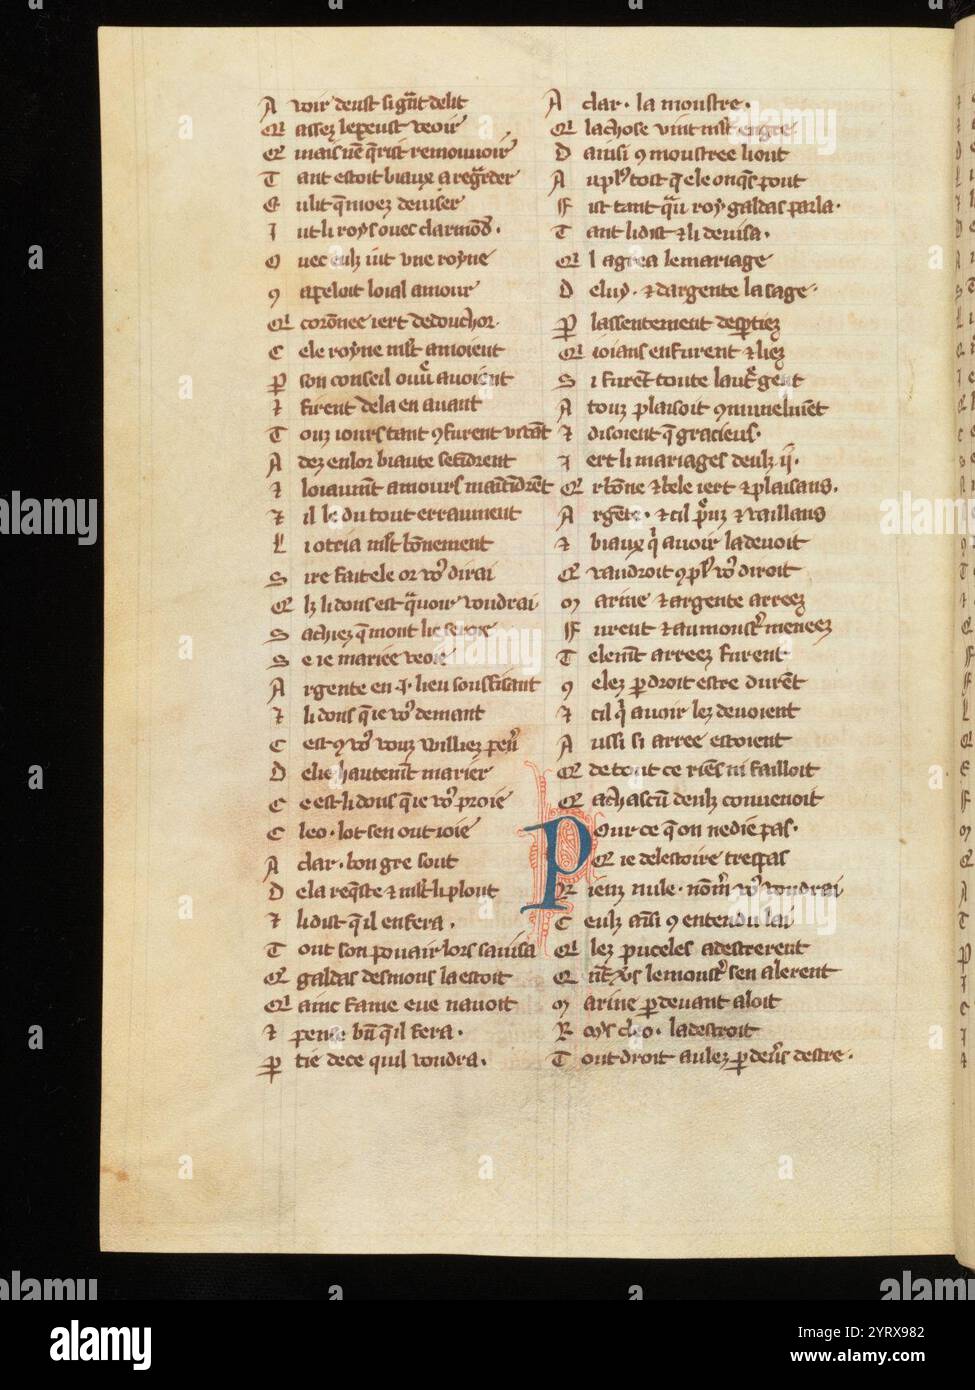 A voir deust si gñt delit
Q assez le peust veoir
Q mais ne q̃rist remouuoir
T ant estoit biaux a regr̃der
E ulit q̃ moez deuiser
I ut li roys ouec clarmõd
O uec eulz iut vne royne
9 apeloit loial amour
Q corõnee iert dedouchor.
C ele royne mlt amoient
P son conseil ouũ auoient
⁊ firent dela en auant
T ouz iours tant 9furent
A dez en lor biaute
⁊ loiaumt amours
⁊ il le du tout erraument
L iotria mlt bõnement
S ire fait ele or vos dirai
Q li dons est q̃ auoir voudrai
S achiez q̃ mont lie seroie
S e ie mariee veoie
A rgente en .i. lieu souffisant
⁊ li dons q̃ ie vos demant
C est 9 vos vouz willies
D elie hautemt marier
C e est li dons q̃ ie vos proie
C leo . lot sen out ioie
A clar . bon gre sout
D ela req̃ste ⁊ mlt li plout
⁊ li dist q̃ il en fera .
T out son pouair lors sauisa
Q galdas desmons la estoit
Q ainc fame eue nauoit
⁊ pense bñ q̃ il fera .
P tie de ce quil voudra .
A clar . la moustre .
Q la chose vint mlt engre
D ainsi 9 moustree li ont
A u plus tost q̃ ele onq̃s pout
F ist tant q̃ au roy galdas parla .
T ant li dist ⁊ li deuisa .
Q l agrea le mariage
D e luy . ⁊ dargente la sage .
P lassentement
Q ioians en furent ⁊ liez
S i furẽt toute lautr̃ gent
A touz plaisoit
⁊ disoient q̃ gracieus .
I ert li mariages deulz .ii.
Q r bõne ⁊ bele iert ⁊ plaisans .
A rgẽte . ⁊ cil preuz ⁊ vaillans
⁊ biaux q̃ auoir la deuoit
Q vaudroit 9 plus vos diroit
M arine ⁊ argente arreez
F urent ⁊ au moustr̃ meneez
T elemt arreez furent
9 elez p droit estre durẽt
⁊ cil q̃ auoir lez deuoient
A ussi si arree estoient
Q de tout ce riẽs ni failloit
Q a chascũ deulz conuenoit
Pour ce q̃ on ne die pas .
Q ie delestoire trespas
R ienz nule . nõm̃ vos voudrai
C eulz aĩsi 9 entendu lai
Q lez puceles adestrerent
Q ñt vs le moustr̃ sen alerent
M arine p deuant aloit
R oys cleo . ladestroit
T out droit aulez p deũs destre .
alamy
Image ID: 2YRX982
www.alamy.com